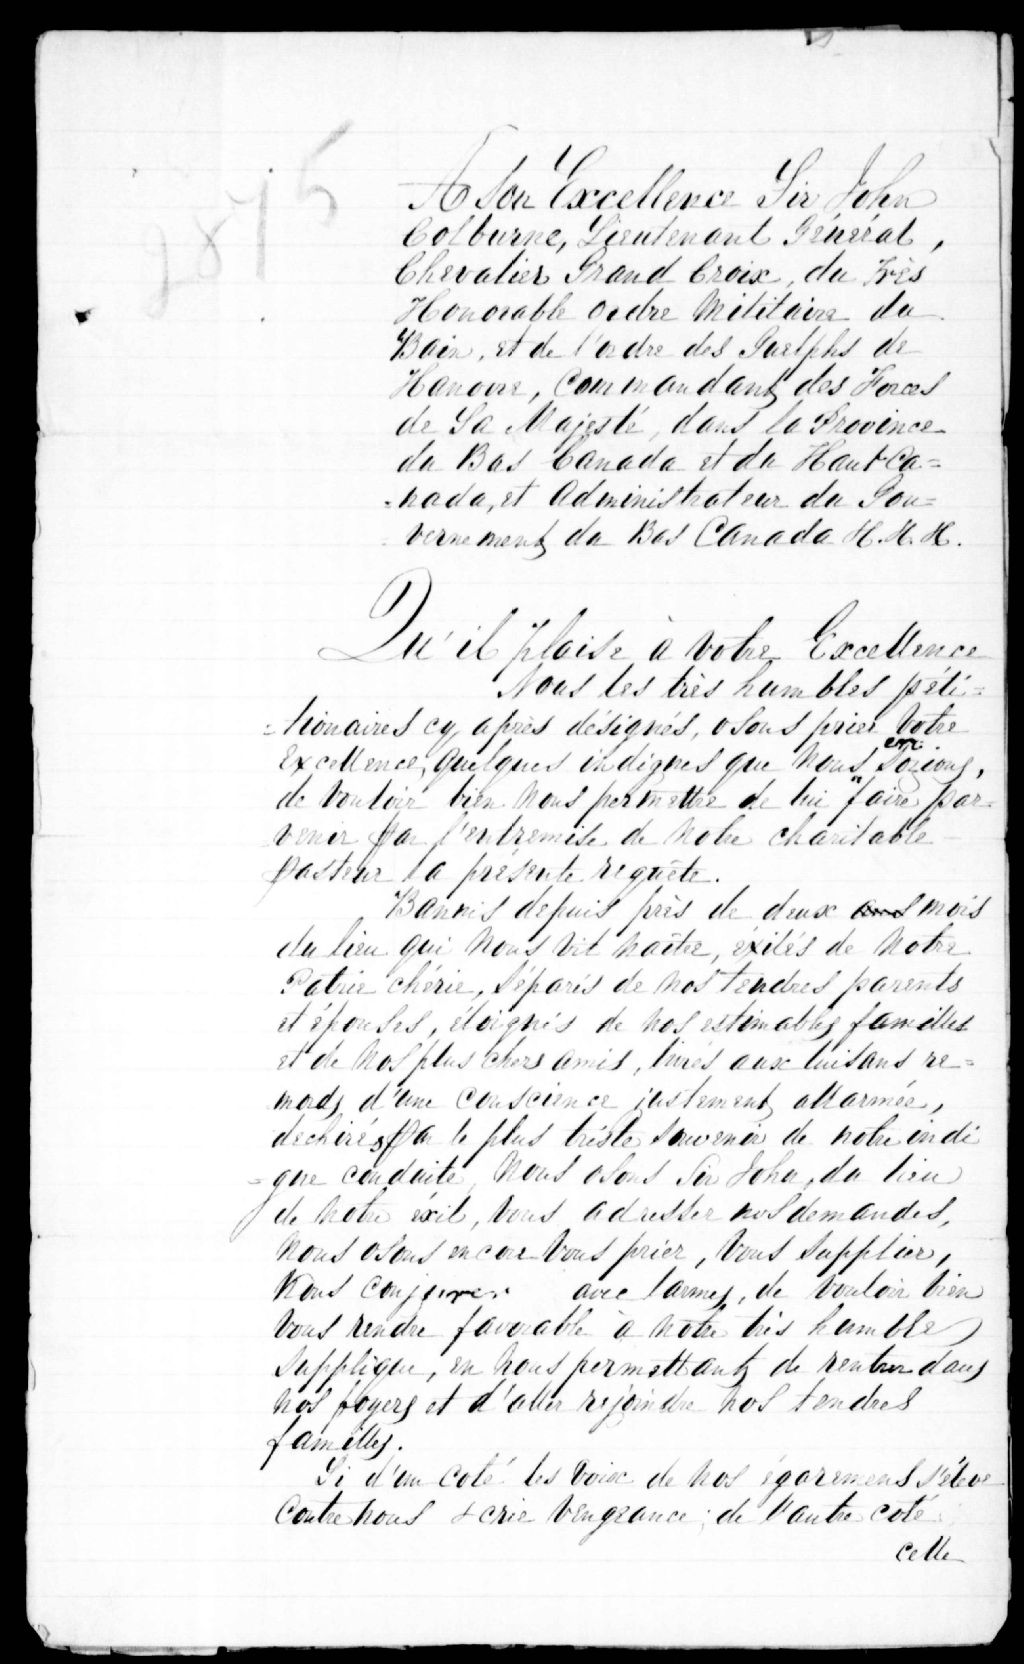 2875
A Son Excellence Sir John
Colburne, Lieutenant Général,
Chevalier Grand Croix, du très
Honorable ordre Militaire du
Bain, et de l'ordre des Guelphs de
Hanovre, Commandant des Forces
de Sa Majesté, dans la Province
du Bas Canada et du Haut Ca=
=nada, et Administrateur du Gou=
vernement du Bas Canada H. H. H.
Qu'il plaise à votre Excellence
Nous les très humbles péti=
=tionaires cy après désignés, osons prier Votre
Excellence, quelques indignes que nous en sozions,
de vouloir bien nous permettre de lui faire par=
venir par l'entremise de notre charitable
pasteur la présente requête.
Bannis depuis près de deux ans mois
du lieu qui nous vit naître, éxilés de notre
Patrie chérie, séparés de nos tendres parents
et épouses, éloignés de nos estimables familles
et de nos plus chers amis, livrés aux cuisans re=
mords d'une conscience justement allarmée,
dechirés par le plus triste souvenir de notre indi
=gne conduite, Nous osons Sir John, du lieu
de notre éxil, vous adresser nos demandes,
Nous osons encore vous prier, vous supplier,
Vous conjurer avec larmes, de vouloir bien
vous rendre favorable à notre très humble
supplique, en nous permettant de rentrer dans
nos foyers et d'aller rejoindre nos tendres
familles.
Si d'un coté les voix de nos égaremens s'élève
Contre nous & crie vengeance; de l'autre coté
celle